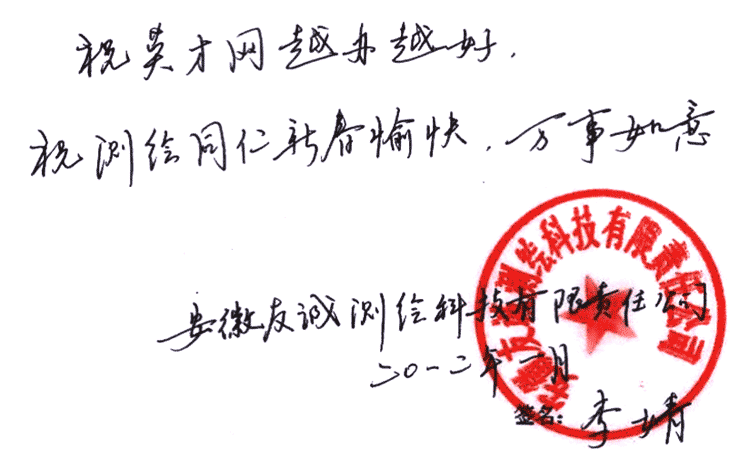 祝英才网越办越好.
祝测绘同仁新春愉快,万事如意
安徽友诚测绘科技有限责任公司
安徽友诚测绘科技有限责任公司
二〇一二年一月
签名: 李婧